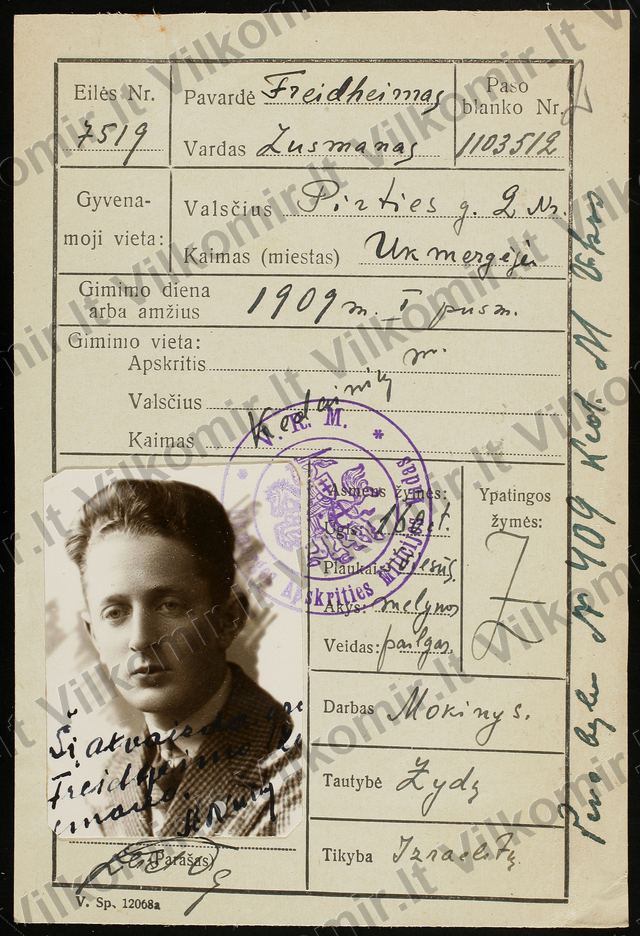 Eilės Nr.
7519
Pavardė Freidheimas
Vardas Zusmanas
Paso
blanko Nr.
1103512
Gyvena-
moji vieta:
Valsčius Pirties g. 2 Nr.
Kaimas (miestas) Ukmergėje
Gimimo diena
arba amžius
1909 m. I pusm.
Gimimo vieta:
Apskritis m.
Valsčius
Kaimas Kedainių
V. R. M.
Apskrities
Asmens žymės:
Ūgis:
Plaukai:
Akys: melynos
Veidas: pailgas
Ypatingos
žymės:
Darbas Mokinys.
Tautybė Žydų
Tikyba Izraelitų
Ši atvaizda
Freidheimo
(Parašas)
V. Sp. 12068a
№ 409
Vilkomir.lt